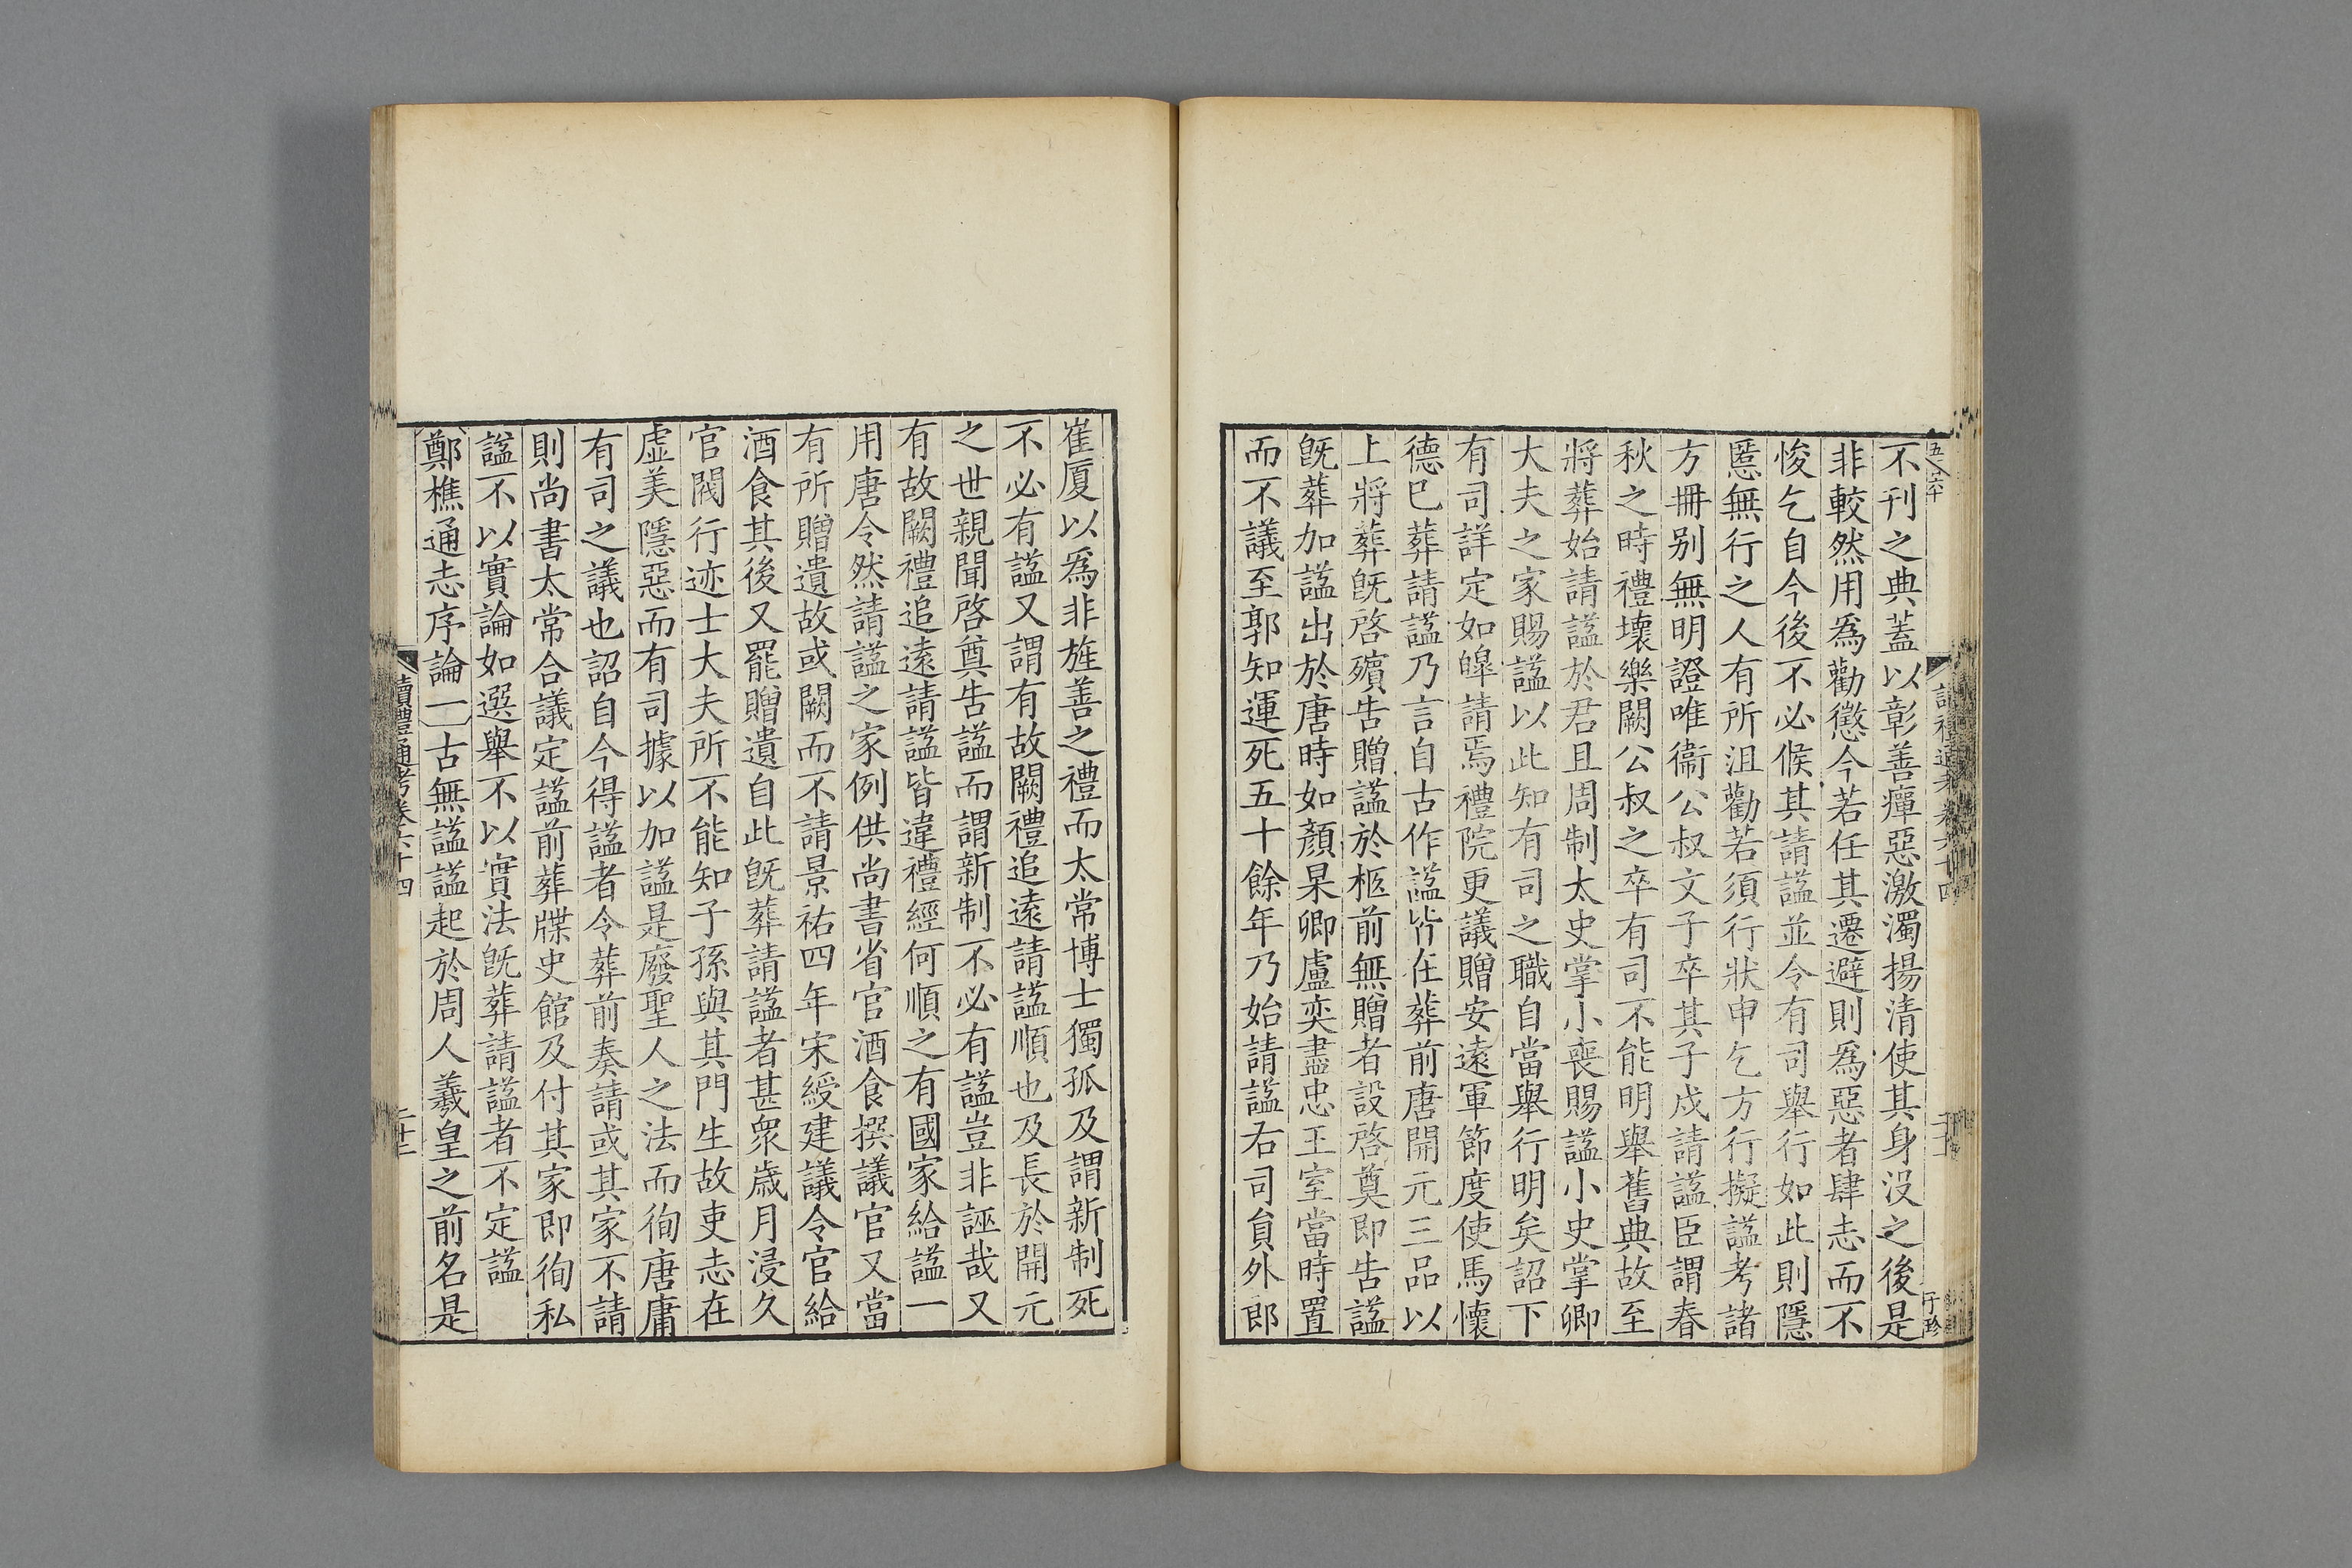 不刊之典蓋以彰善癉惡激濁揚清使其身没之後是
非較然用爲勸懲今若任其遷避則爲惡者肆志而不
悛乞自今後不必候其請諡並令有司舉行如此則隱
慝無行之人有所沮勸若須行狀申乞方行擬諡考諸
方冊别無明證唯衞公叔文子卒其子戍請諡臣謂春
秋之時禮壞樂闕公叔之卒有司不能明舉舊典故至
將葬始請諡於君且周制太史掌小喪賜諡小史掌卿
大夫之家賜諡以此知有司之職自當舉行明矣詔下
有司詳定如皞請焉禮院更議贈安遠軍節度使馬懷
德已葬請諡乃言自古作諡皆在葬前唐開元三品以
上將葬旣啓殯告贈諡於柩前無贈者設啓奠即告諡
旣葬加諡出於唐時如顏杲卿盧奕盡忠王室當時置
而不議至郭知運死五十餘年乃始請諡右司貟外郎
崔厦以爲非旌善之禮而太常博士獨孤及謂新制死
不必有諡又謂有故闕禮追遠請諡順也及長於開元
之世親聞啓奠告諡而謂新制不必有諡豈非誣哉又
有故闕禮追遠請諡皆違禮經何順之有國家給諡一
用唐令然請諡之家例供尚書省官酒食撰議官又當
有所贈遺故或闕而不請景祐四年宋綬建議令官給
酒食其後又罷贈遺自此旣葬請諡者甚衆歲月浸久
官閥行迹士大夫所不能知子孫與其門生故吏志在
虛美隱惡而有司據以加諡是廢聖人之法而徇唐庸
有司之議也詔自今得諡者令葬前奏請或其家不請
則尚書太常合議定諡前葬牒史館及付其家即徇私
諡不以實論如選舉不以實法旣葬請諡者不定諡
鄭樵通志序論一古無諡諡起於周人羲皇之前名是
讀禮通考卷六十四